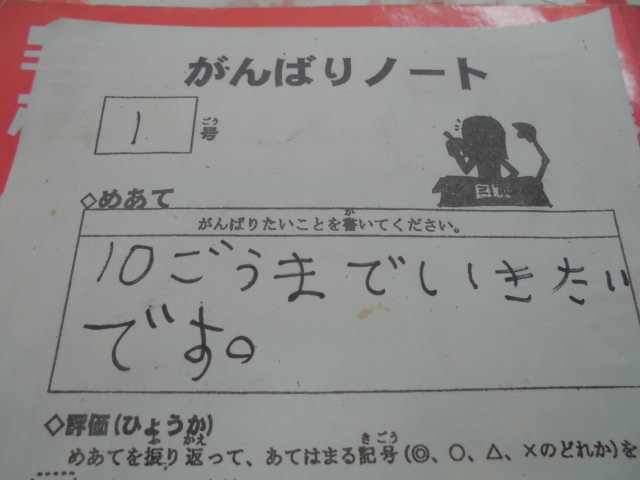 がんばりノート
1号
◇めあて
がんばりたいことを書いてください。
10ごうまでいきたい
です。
◇評価(ひょうか)
めあてを振り返って、あてはまる記号(◎、○、△、×のどれか)を